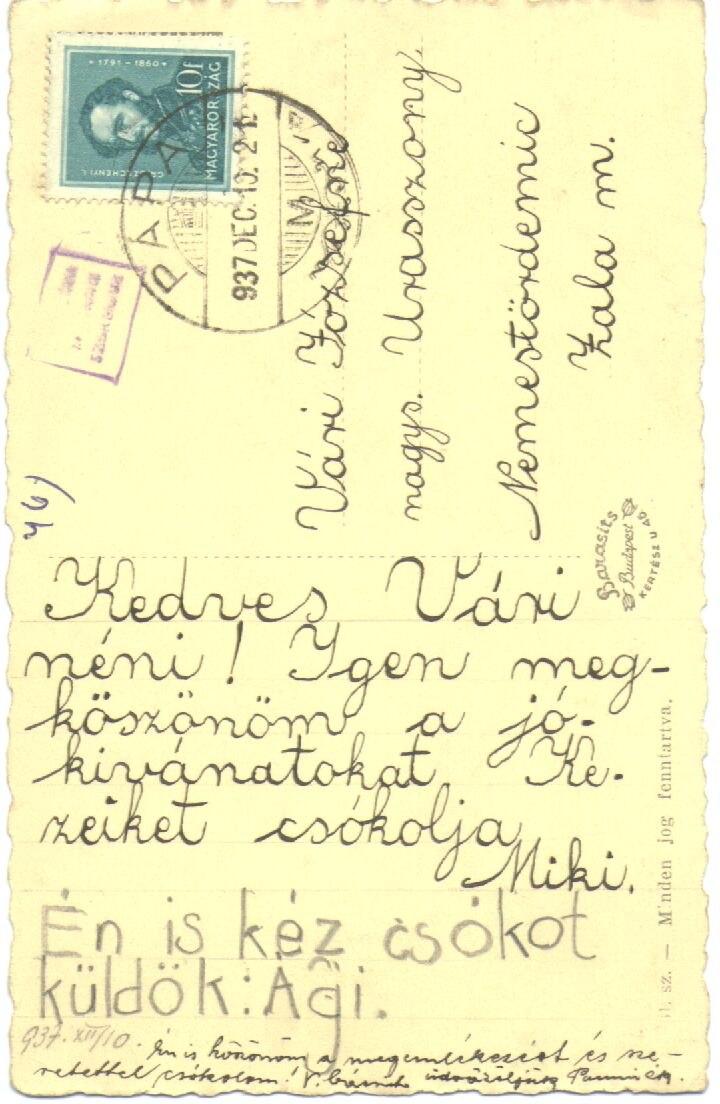 * 1791 - 1860 *
10f
MAGYARORSZÁG
GR. SZÉCHENYI I.
PÁPA
937 DEC. 10. 21
Vári Józsefné
nagys. Urasszony
Nemestördemic
Zala m.
46)
Barasits
Budapest
KERTÉSZ U 40
Kedves Vári
néni! Igen meg-
köszönöm a jó-
kivánatokat. Ke-
zeiket csókolja
Miki.
Én is kéz csókot
küldök: Ági.
937. XII/10.
Én is köszönöm a megemlékezést és sze-
retettel csókolom!
sz. — Minden jog fenntartva.